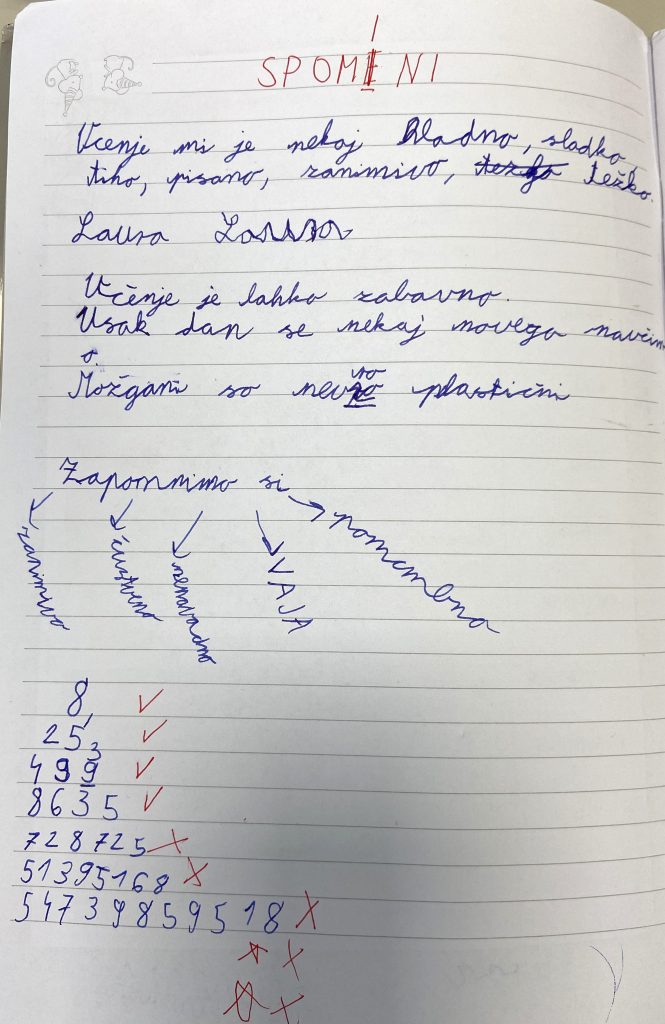 SPOMINI
Učenje mi je nekaj hladno, sladko,
tiho, pisano, zanimivo, težko.
Laura
Učenje je lahko zabavno.
Usak dan se nekaj novega naučim
o.
Možgani so nevro plastični
Zapomnimo si
zanimivo
čustveno
nenavadno
VAJA
pomembno
8,
25,
499
8635
728725
51395168
547398859518